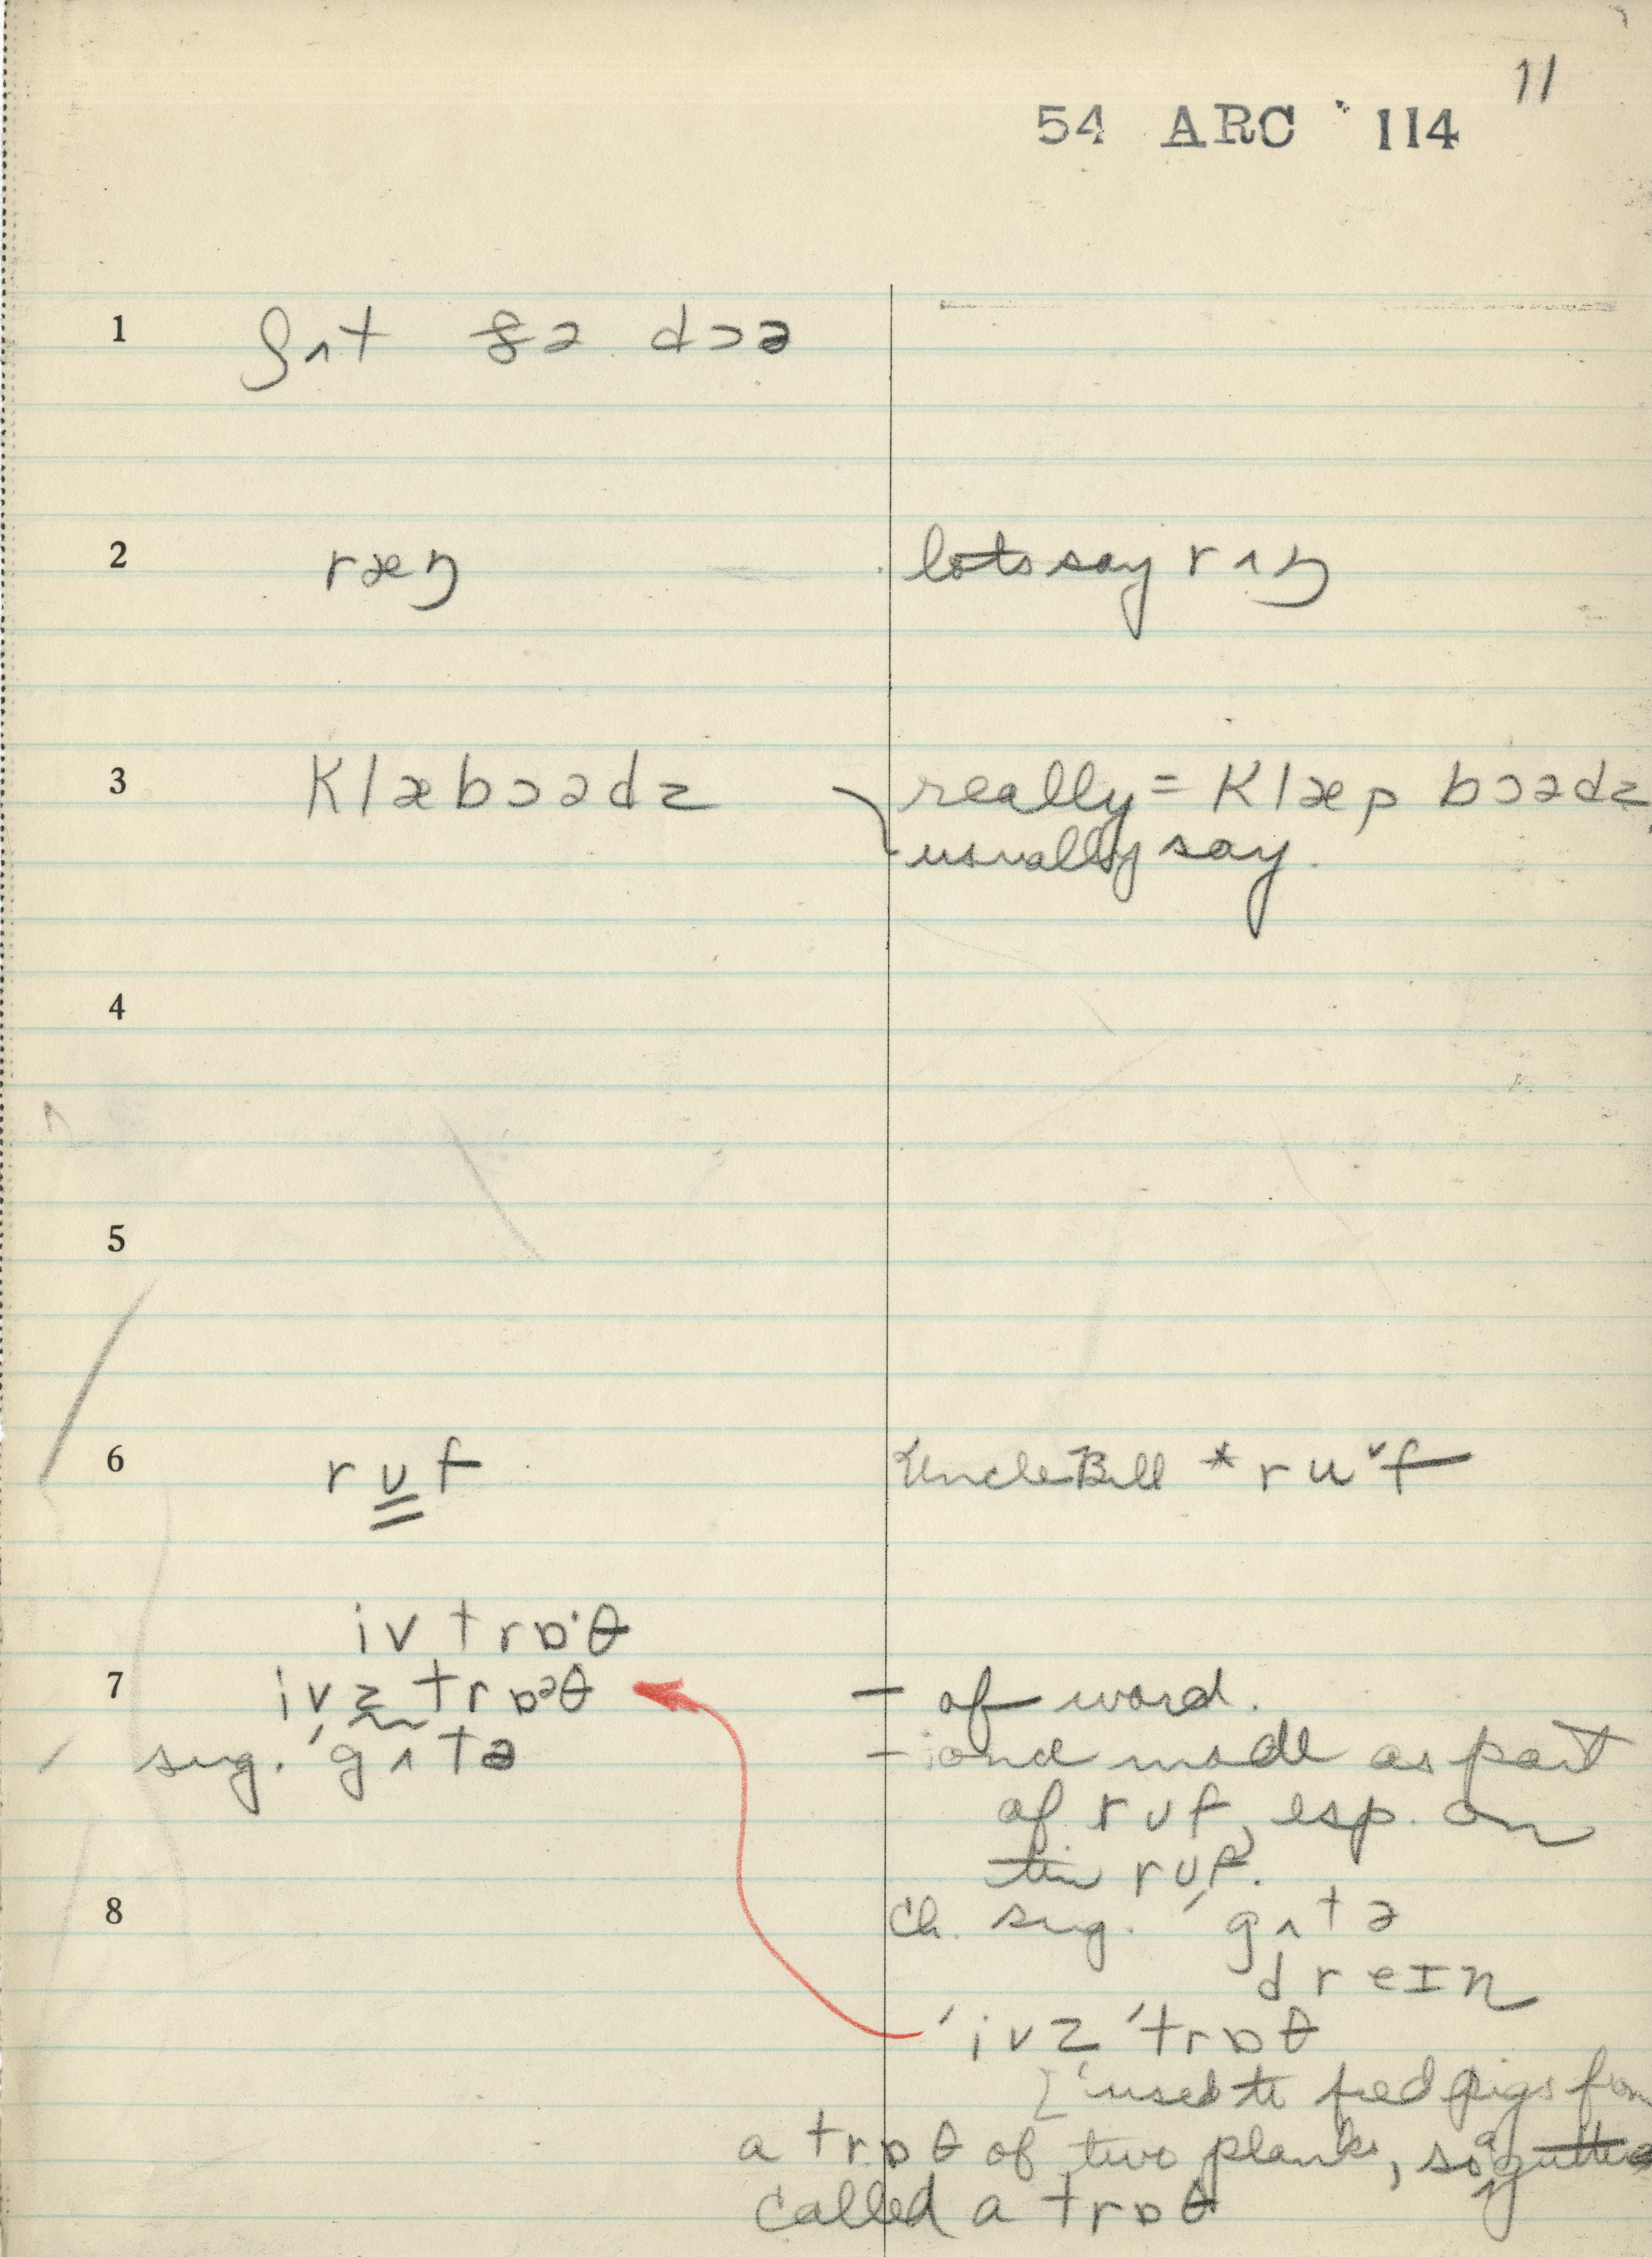 11
54 ARC 114
1 ʃʌt ðə dɔə
2 ræŋ lots say rʌŋ
3 klæbɔədz really = klæp bɔədz
usually say.
4
5
6 rʊf Uncle Bill * ru˅f
iv trɒ·θ
7 ivz trɒəθ – of word.
sug. ˈgʌtə – and made as part
of rʊf, esp. on
tin rʊf.
8 Ch. sug. ˈgʌtə
dreɪn
ˈivz ˈtrɒθ
[ used to feed pigs from
a trɒθ of two planks, so a gutter
called a trɒθ